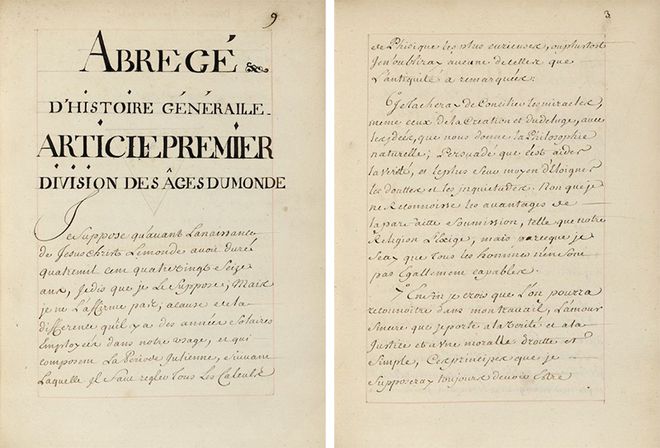 9
ABREGÉ
D'HISTOIRE GÉNÉRAILE.
ARTICLE PREMIER
DIVISION DES ÂGES DU MONDE
Je Suppose qu'avant La naissance
de Jesus christ Le monde avoit duré
quatre mil cent quatre vingt Seize
ans, Je dis que je Le Suppose; Mais
je ne L'affirme pas, a cause de la
difference qu'il y a des années Solaires
Employées dans notre usage, et qui
composent La Periode Julienne, Suivant
Laquelle Il faut regler tous Les Calculs
3
de Phisique les plus curieuses, ou plustost
Je n'oublirai aucune de celles que
L'antiquité a remarquées.
6.° Je tacherai de Concilier les miracles,
meme ceux de la Creation et du deluge, avec
les idées, que nous donne la Philosophie
naturelle, Persuadé que c'est aider
la verité, et le plus Seur moyen d'Eloigner
les doutes et les inquietudes. Non que je
ne Reconnoisse les avantages de
la parfaite Soumission, telle que notre
Religion L'Exige, mais parce que je
Sçay que tous les hommes n'en Sont
pas Egallement capables.
7.° Enfin je crois que L'on pourra
reconnoitre dans mon travail, L'amour
Sincere que je porte a la verité et a la
Justice et a une moralle droitte et
Simple, C'es principes que je
Supposeray toujours devoir Estre